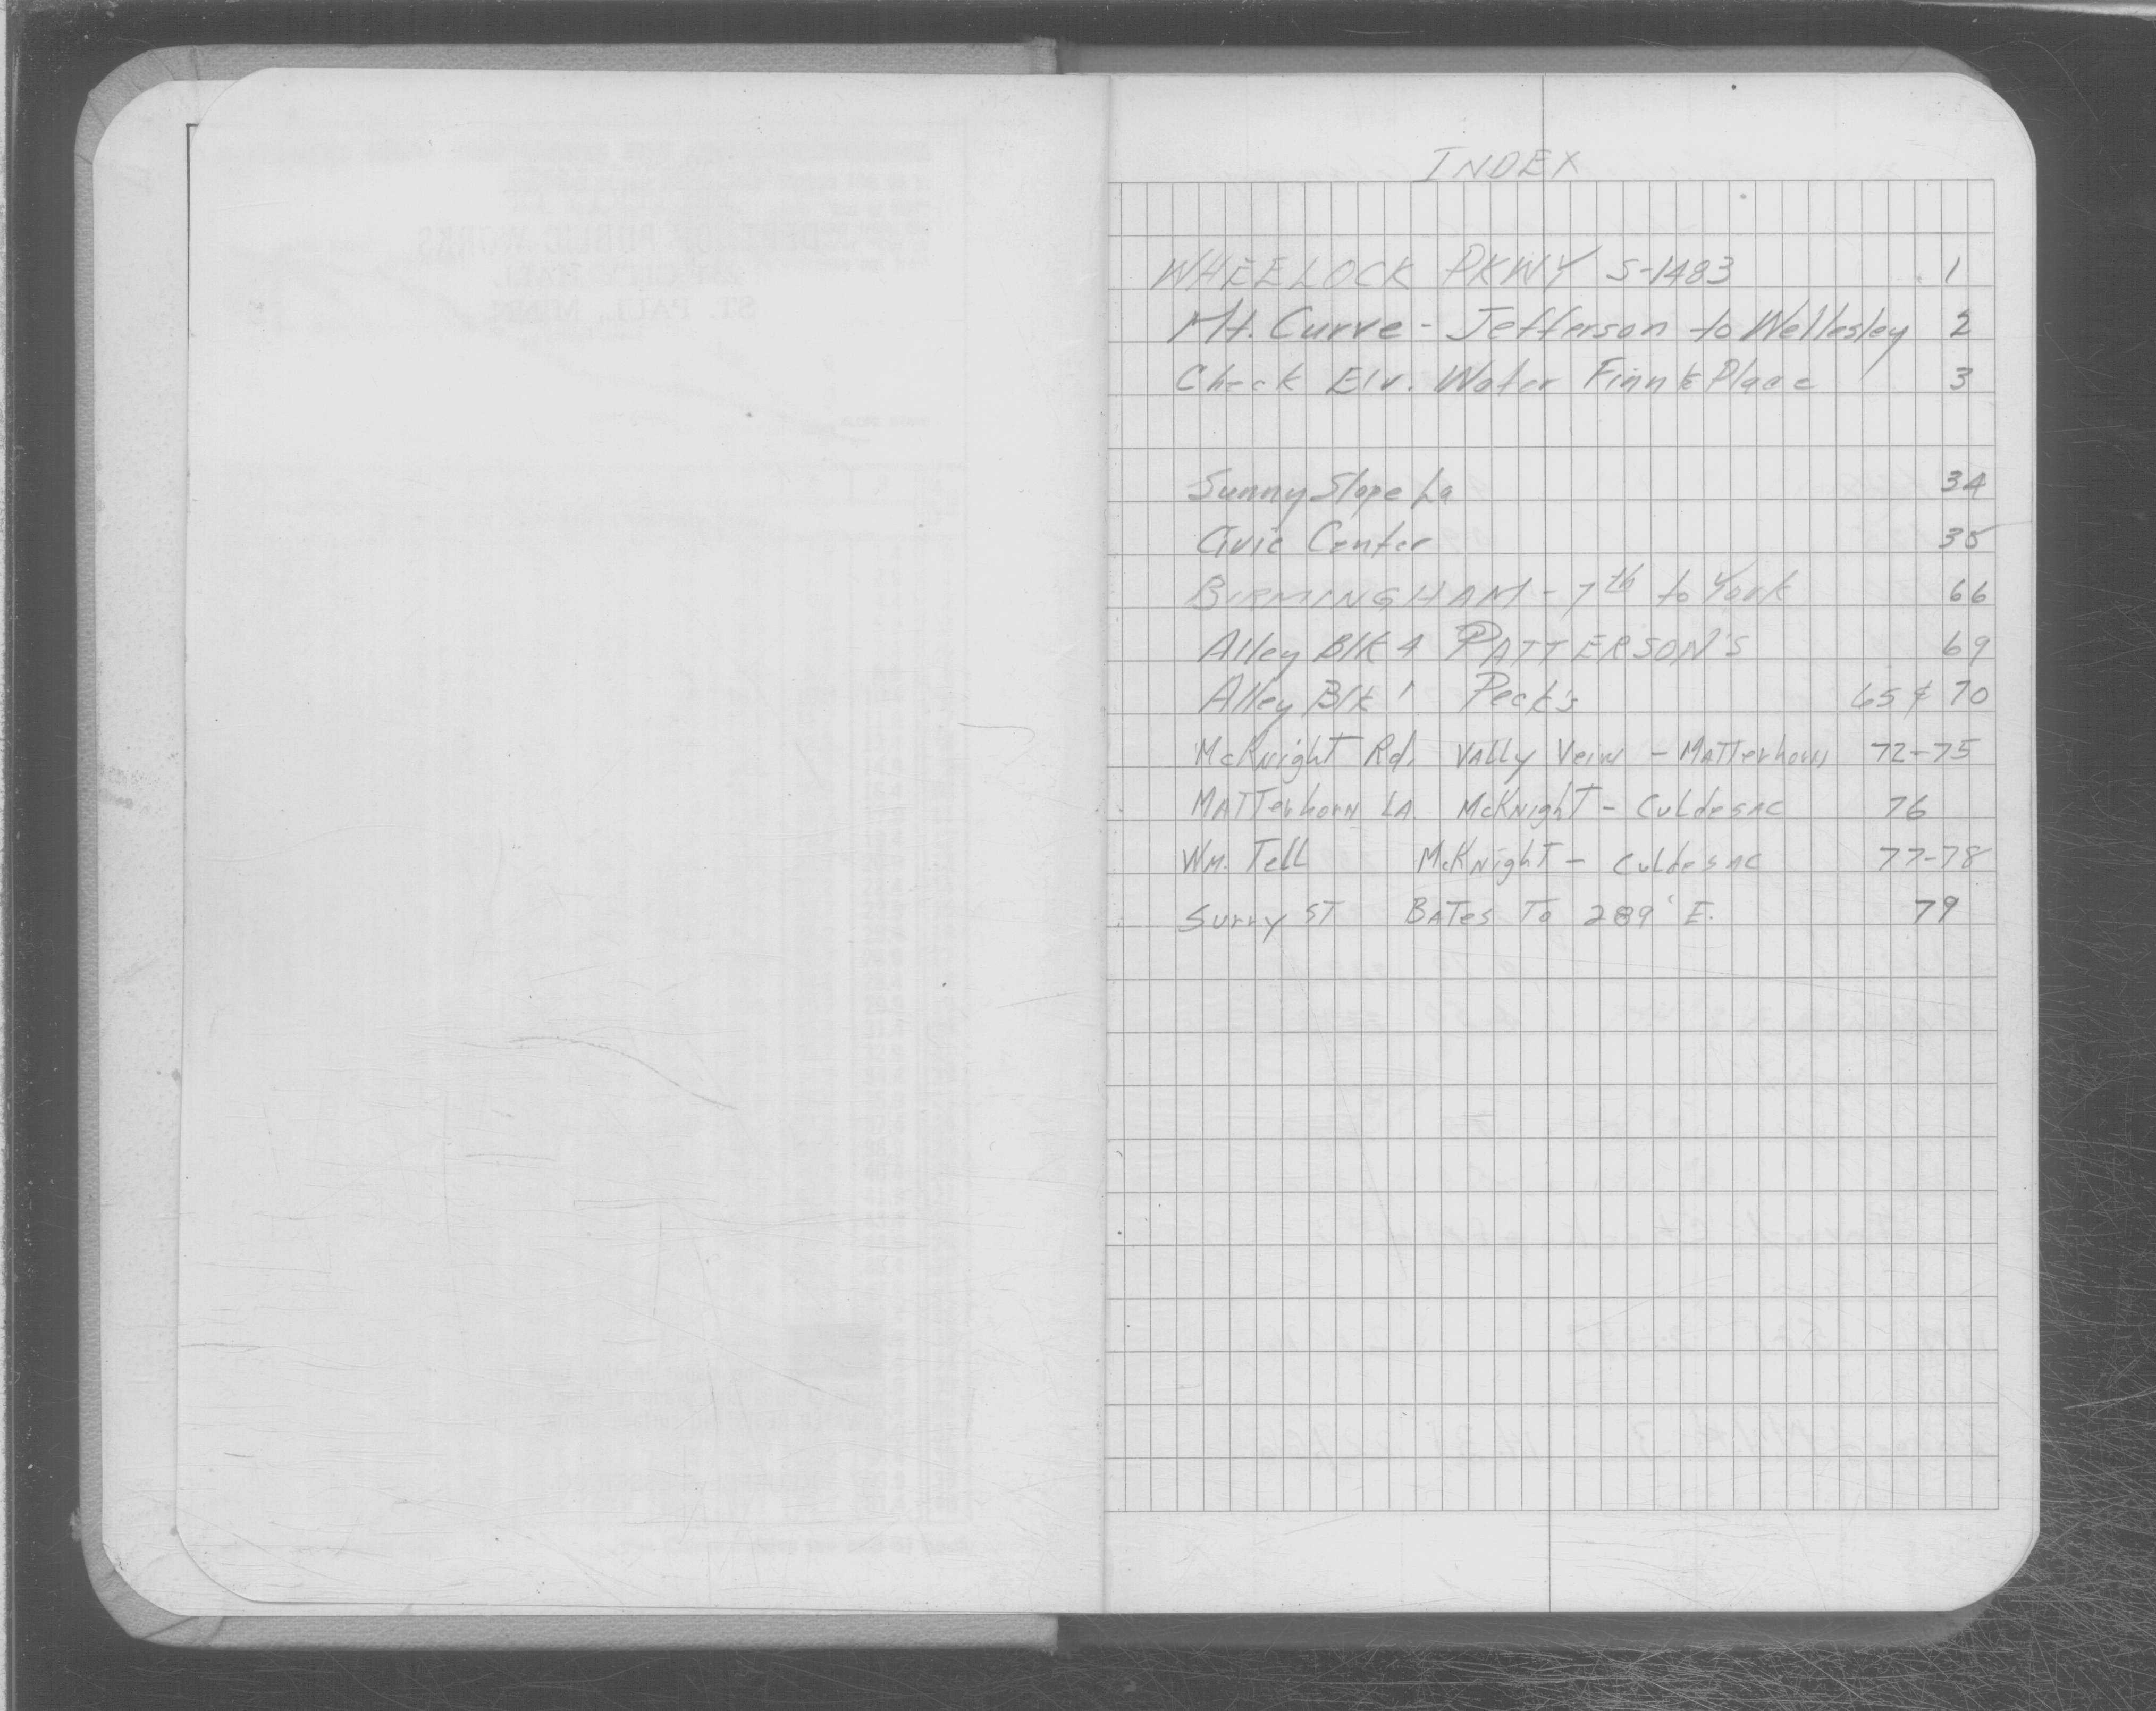 INDEX
WHEELOCK PKWY S-1483 1
Mt. Curve - Jefferson to Wellesley 2
Check Elv. Water Finn & Place 3
Sunny Slope La 34
Civic Center 35
BIRMINGHAM - 7th to York 66
Alley Blk 4 PATTERSON'S 69
Alley Blk 1 Peck's 65 & 70
McKnight Rd. VALLY Veiw - MATTerhorn 72-75
MATTerhorn LA. McKNighT - CuLdesAC 76
WM. Tell McKNighT - CuldesAC 77-78
Surry ST BATes To 289' E. 79